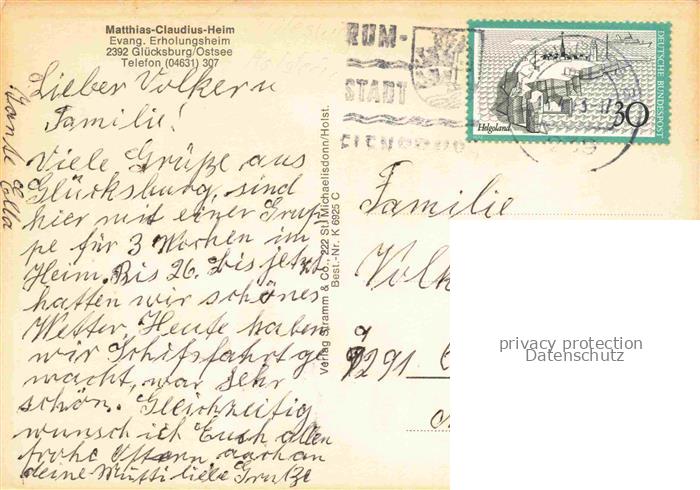 Matthias-Claudius-Heim
Evang. Erholungsheim
2392 Glücksburg/Ostsee
Telefon (04631) 307
Lieber Volker u
Familie!
Viele Grüße aus
Glücksburg, sind
hier mit einer Grup-
pe für 3 Wochen im
Heim. Bis 26. bis jetzt
hatten wir schönes
Wetter. Heute haben
wir Schifsfahrt ge
macht, war sehr
schön. Gleichzeitig
wunsch ich Euch allen
frohe Ostern, auch an
deine Mutti liebe Grüße
Ella
Verlag Stramm & Co., 222 St. Michaelisdonn/Holst.
Best.-Nr. K 6925 C
RUM-
STADT
DEUTSCHE BUNDESPOST
Helgoland
30
Familie
Volk
7291
privacy protection
Datenschutz